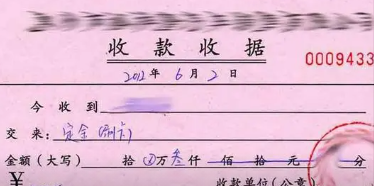 收款收据
0009433
2012年6月2日
今收到
交来:定金(刷卡)
金额(大写) 拾 万叁仟 佰 拾 元 分
¥ 收款单位(公章)